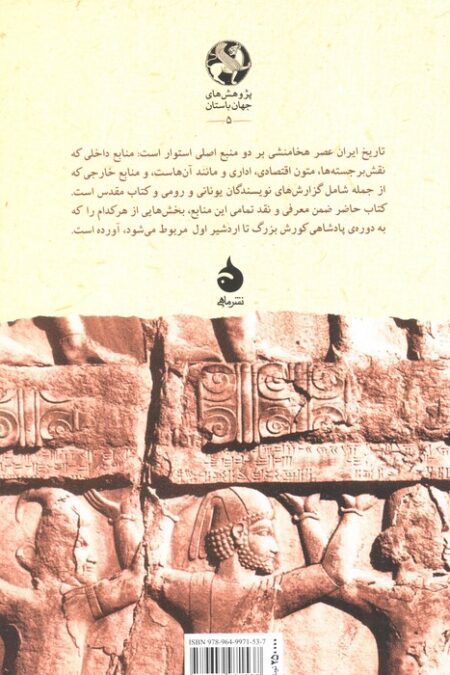 پژوهش‌های
جهان باستان
-۵-
تاریخ ایران عصر هخامنشی بر دو منبع اصلی استوار است: منابع داخلی که
نقش‌برجسته‌ها، متون اقتصادی، اداری و مانند آن‌هاست، و منابع خارجی که
از جمله شامل گزارش‌های نویسندگان یونانی و رومی و کتاب مقدس است.
کتاب حاضر ضمن معرفی و نقد تمامی این منابع، بخش‌هایی از هرکدام را که
به دوره‌ی پادشاهی کورش بزرگ تا اردشیر اول مربوط می‌شود، آورده است.
نشرماهی
ISBN 978-964-9971-53-7